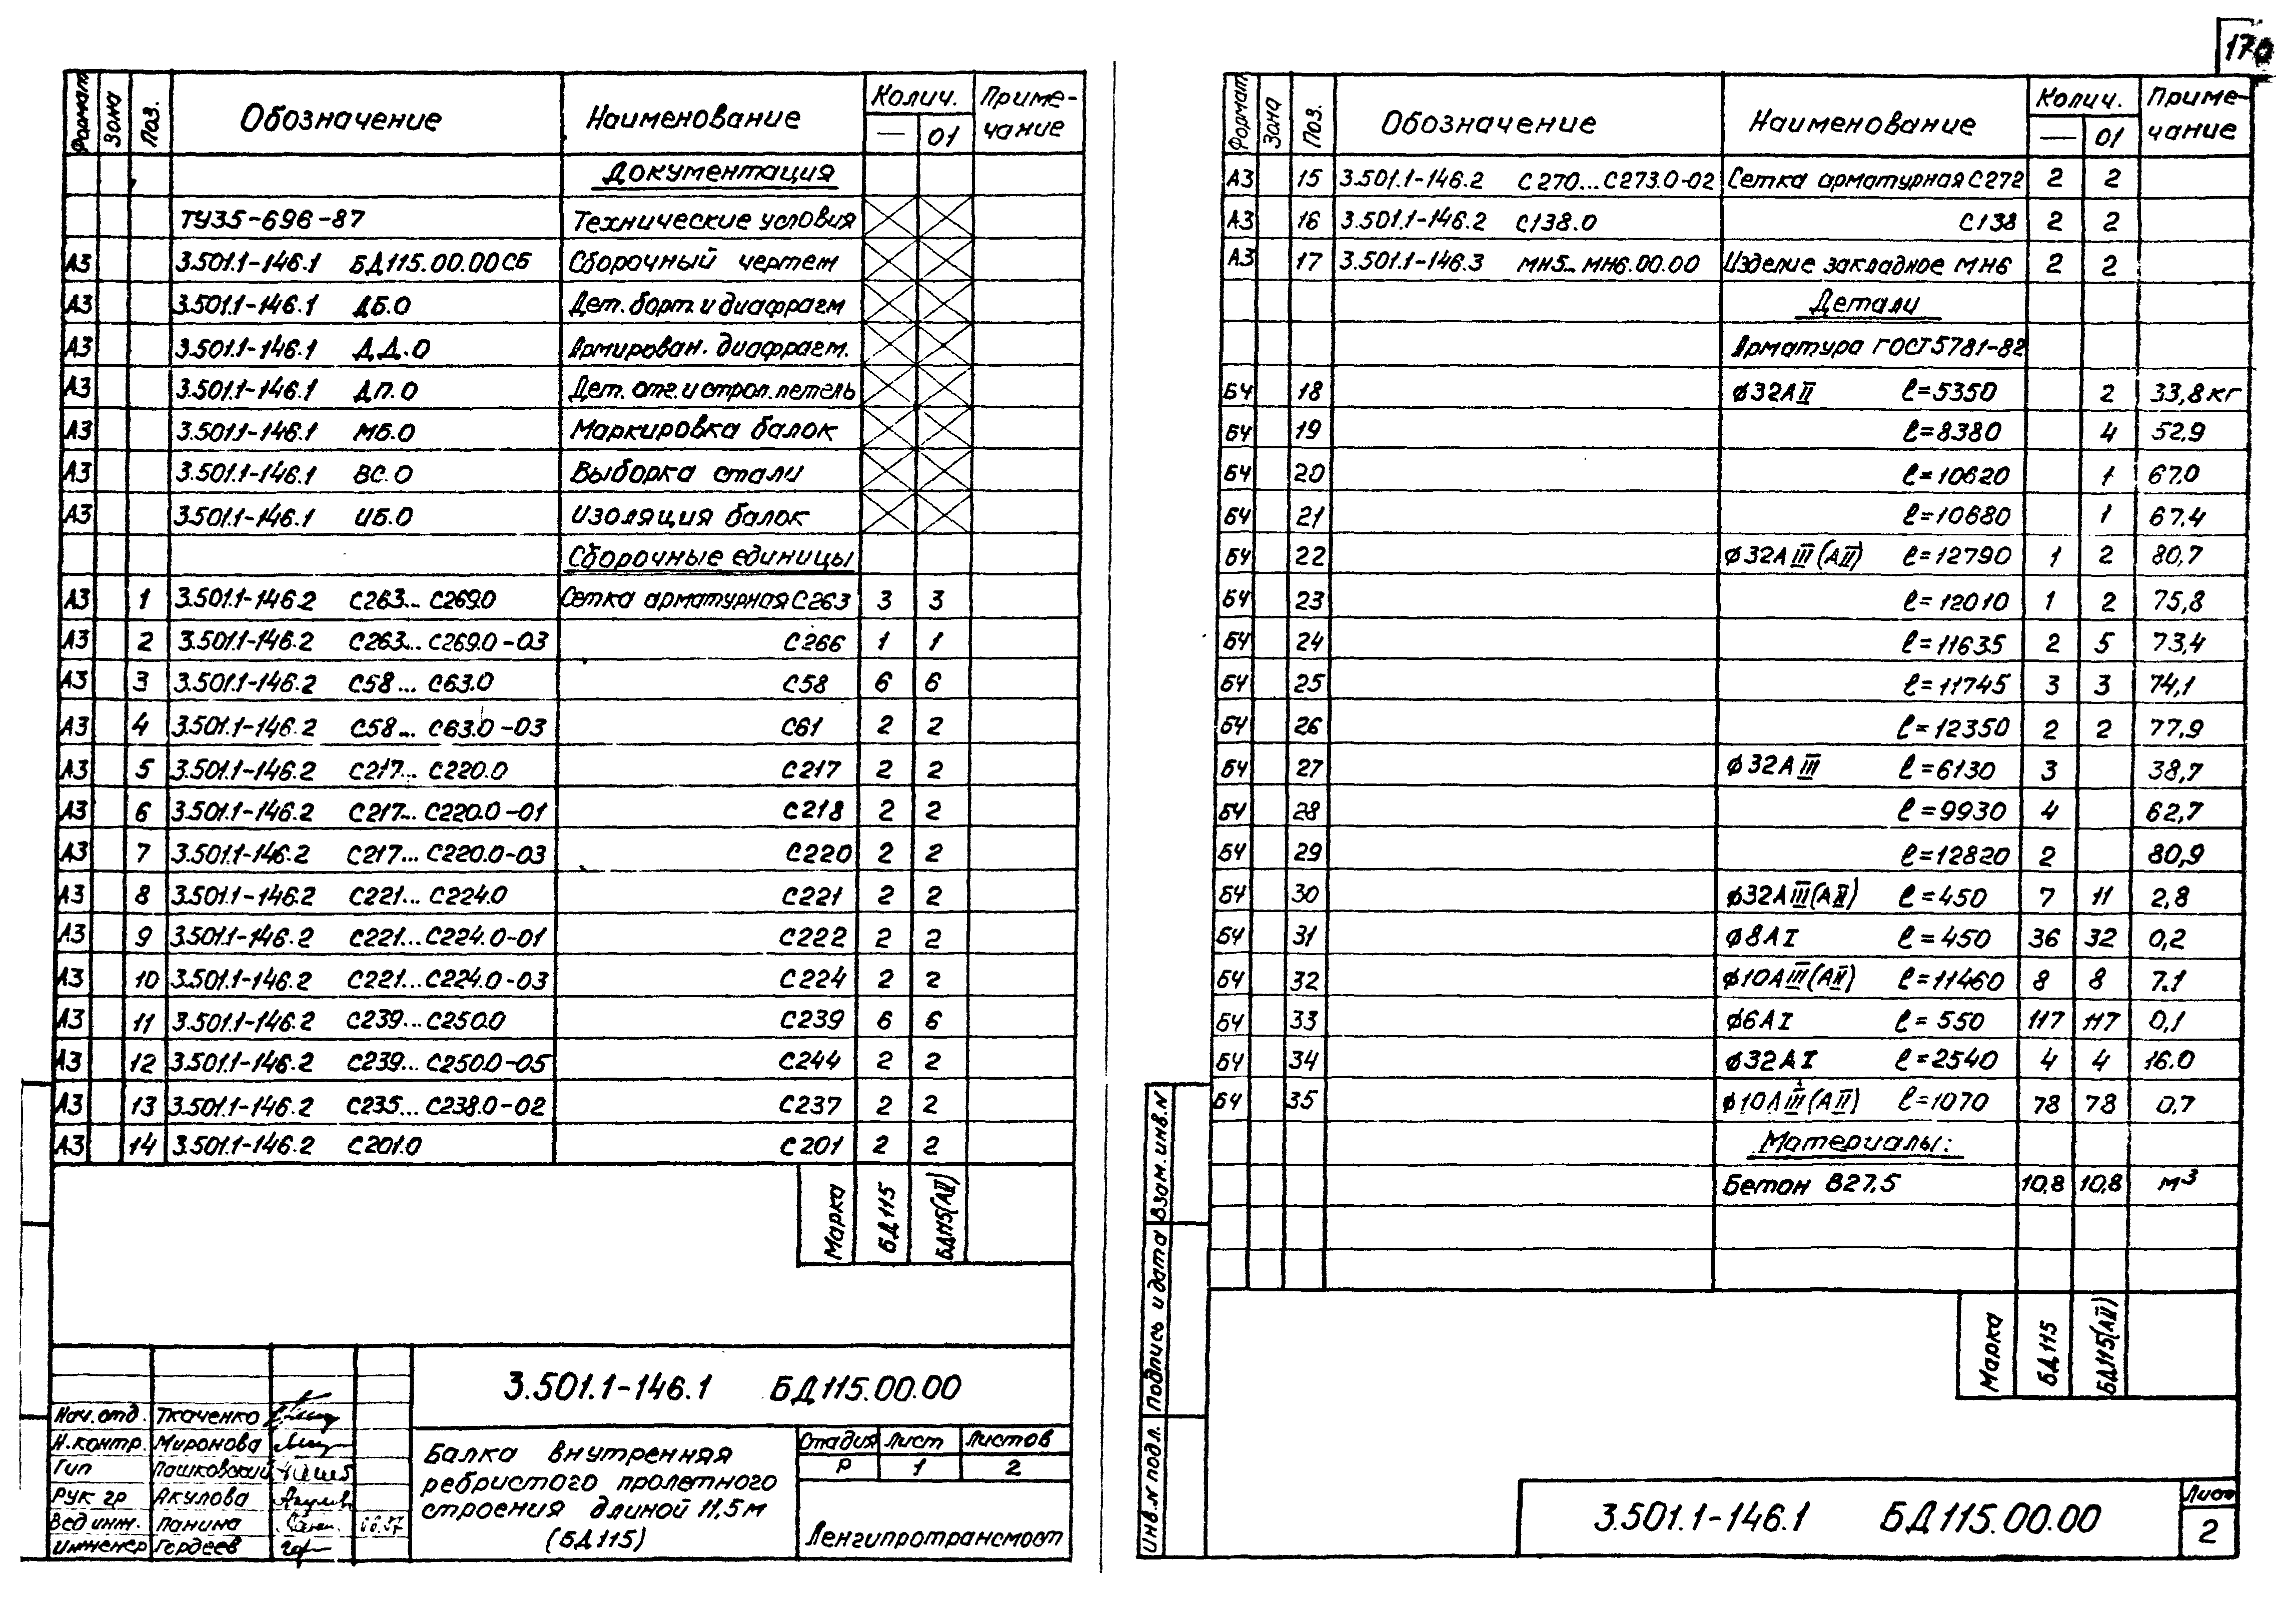 170
Формат Зона Поз. Обозначение Наименование Колич. Приме-
— 01 чание
Документация
ТУ35-696-87 Технические условия
А3 3.501.1-146.1 БД115.00.00СБ Сборочный чертеж
А3 3.501.1-146.1 ДБ.0 Дет. борт. и диафрагм
А3 3.501.1-146.1 Д.Д.0 Армирован. диафрагм.
А3 3.501.1-146.1 ДП.0 Дет. отг. и строп. петель
А3 3.501.1-146.1 МБ.0 Маркировка балок
А3 3.501.1-146.1 ВС.0 Выборка стали
А3 3.501.1-146.1 ИБ.0 Изоляция балок
Сборочные единицы
А3 1 3.501.1-146.2 С263... С269.0 Сетка арматурная С263 3 3
А3 2 3.501.1-146.2 С263... С269.0-03 С266 1 1
А3 3 3.501.1-146.2 С58... С63.0 С58 6 6
А3 4 3.501.1-146.2 С58... С63.0-03 С61 2 2
А3 5 3.501.1-146.2 С217... С220.0 С217 2 2
А3 6 3.501.1-146.2 С217... С220.0-01 С218 2 2
А3 7 3.501.1-146.2 С217... С220.0-03 С220 2 2
А3 8 3.501.1-146.2 С221... С224.0 С221 2 2
А3 9 3.501.1-146.2 С221... С224.0-01 С222 2 2
А3 10 3.501.1-146.2 С221... С224.0-03 С224 2 2
А3 11 3.501.1-146.2 С239... С250.0 С239 6 6
А3 12 3.501.1-146.2 С239... С250.0-05 С244 2 2
А3 13 3.501.1-146.2 С235... С238.0-02 С237 2 2
А3 14 3.501.1-146.2 С201.0 С201 2 2
Марка БД115 БД115(АII)
3.501.1-146.1 БД115.00.00
Нач. отд. Ткаченко
Н. контр. Миронова
Гип Пашковский
Рук гр Акулова
Вед инж. Панина
Инженер Гордеев
Балка внутренняя
ребристого пролетного
строения длиной 11,5м
(БД115)
Стадия Лист Листов
Р 1 2
Ленгипротрансмост
Формат Зона Поз. Обозначение Наименование Колич. Приме-
— 01 чание
А3 15 3.501.1-146.2 С270... С273.0-02 Сетка арматурная С272 2 2
А3 16 3.501.1-146.2 С138.0 С138 2 2
А3 17 3.501.1-146.3 МН5... МН6.00.00 Изделие закладное МН6 2 2
Детали
Арматура ГОСТ5781-82
БЧ 18 ϕ32АII ℓ=5350 2 33,8кг
БЧ 19 ℓ=8380 4 52,9
БЧ 20 ℓ=10620 1 67.0
БЧ 21 ℓ=10680 1 67.4
БЧ 22 ϕ32АIII(АII) ℓ=12790 1 2 80,7
БЧ 23 ℓ=12010 1 2 75,8
БЧ 24 ℓ=11635 2 5 73,4
БЧ 25 ℓ=11745 3 3 74,1
БЧ 26 ℓ=12350 2 2 77,9
БЧ 27 ϕ32АIII ℓ=6130 3 38,7
БЧ 28 ℓ=9930 4 62,7
БЧ 29 ℓ=12820 2 80,9
БЧ 30 ϕ32АIII(АII) ℓ=450 7 11 2,8
БЧ 31 ϕ8АI ℓ=450 36 32 0,2
БЧ 32 ϕ10АIII(АII) ℓ=11460 8 8 7.1
БЧ 33 ϕ6АI ℓ=550 117 117 0,1
БЧ 34 ϕ32АI ℓ=2540 4 4 16.0
БЧ 35 ϕ10АIII(АII) ℓ=1070 78 78 0.7
Материалы:
Бетон В27.5 10,8 10,8 м³
Марка БД115 БД115(АII)
Взам. инв. N
Подпись и дата
Инв. N подл.
3.501.1-146.1 БД115.00.00
Лист
2